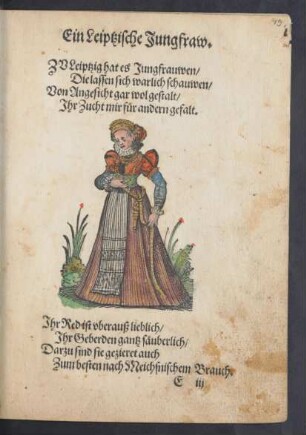 Ein Leiptzische Jungfraw.
ZV Leiptzig hat es Jungfrauwen/
Die lassen sich warlich schauwen/
Von Angesicht gar wol gestalt/
Ihr Zucht mir für andern gefalt.
Ihr Red ist vberauß lieblich/
Ihr Geberden gantz säuberlich/
Darzu sind sie gezieret auch
Zum besten nach Meichsnischem Brauch.
E iij